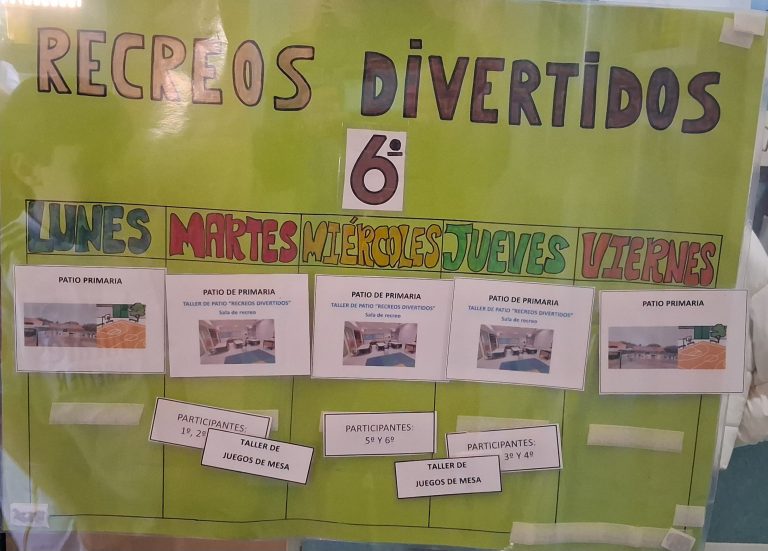 RECREOS DIVERTIDOS
6º
LUNES MARTES MIÉRCOLES JUEVES VIERNES
PATIO PRIMARIA
PATIO DE PRIMARIA
TALLER DE PATIO "RECREOS DIVERTIDOS"
Sala de recreo
PATIO DE PRIMARIA
TALLER DE PATIO "RECREOS DIVERTIDOS"
Sala de recreo
PATIO DE PRIMARIA
TALLER DE PATIO "RECREOS DIVERTIDOS"
Sala de recreo
PATIO PRIMARIA
PARTICIPANTES:
1º, 2º
TALLER DE
JUEGOS DE MESA
PARTICIPANTES:
5º Y 6º
PARTICIPANTES:
3º Y 4º
TALLER DE
JUEGOS DE MESA